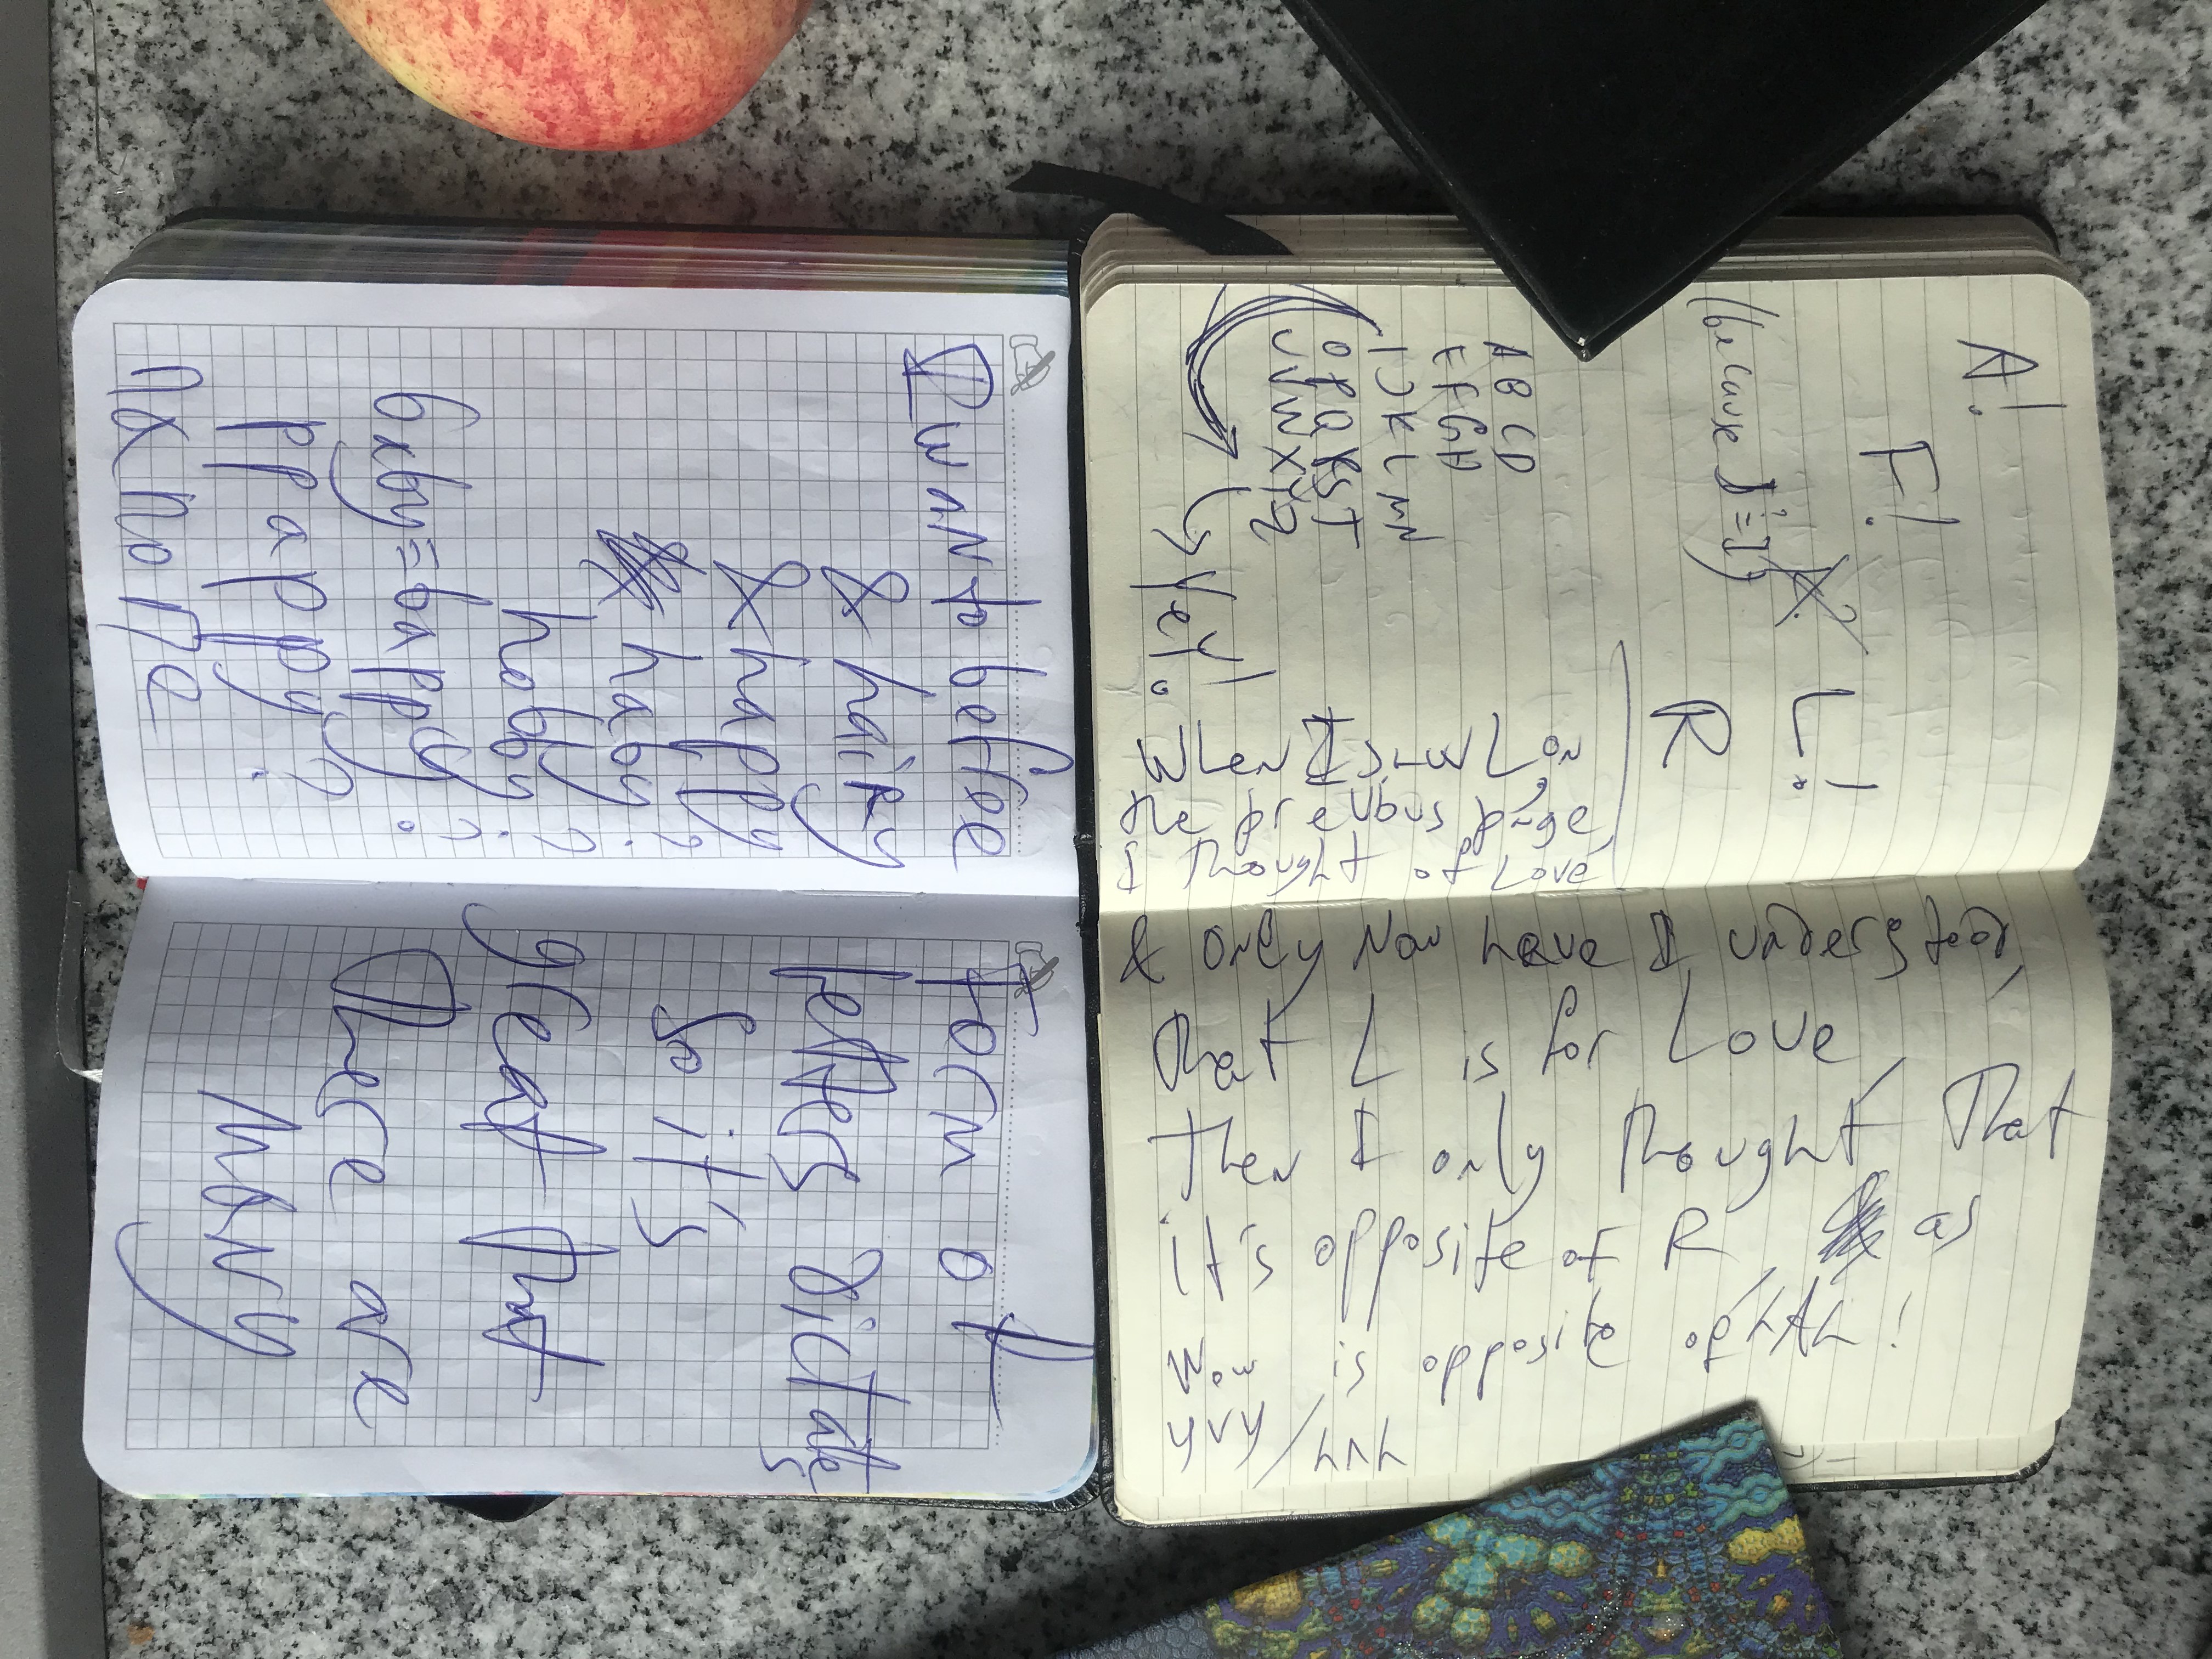 A!
F!
X?
L!
(because J=I)
R
A B C D
E F G H
I J K L M N
O P Q R S T
U V W X Y Z
Yey!
When I saw L on
the previous page,
I thought of Love
& only now have I understood,
that L is for Love,
then I only thought, that
it's opposite of R, as
wow is opposite of hAh!
yvy/hʌh
I want to befree
& hairy
& happy
haby?
hobby?
baby=bappy?
ppappy?
form of
letters dictates
so it's
great that
there are
many